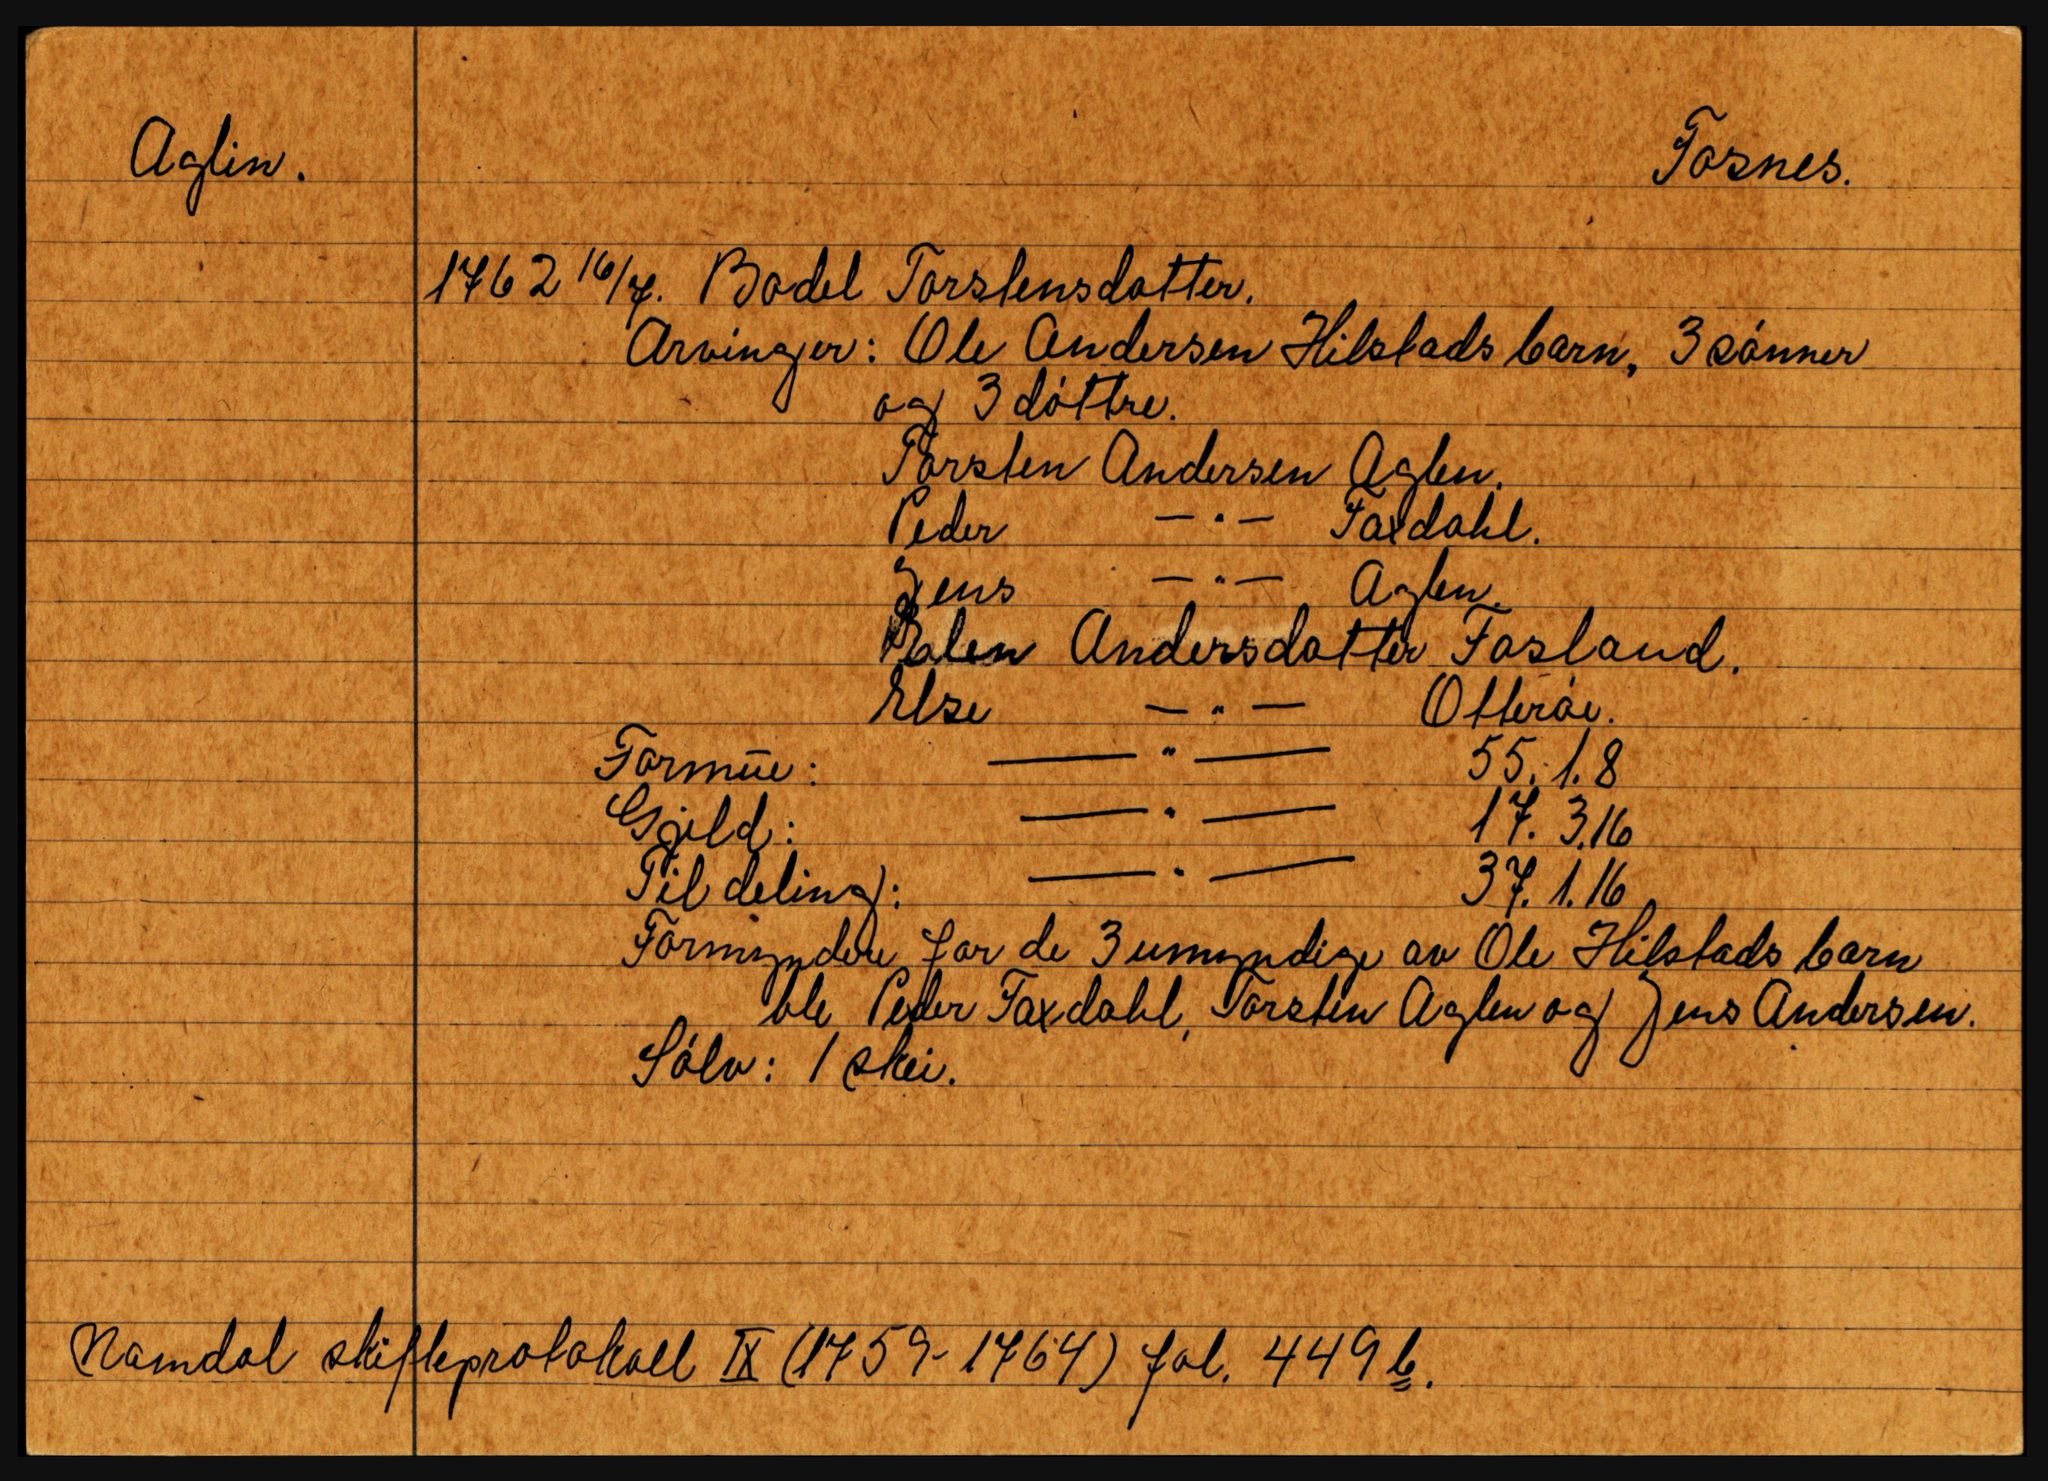 Aglin.
Fosnes.
1762 16/7. Bodel Torstensdatter.
Arvinger: Ole Andersen Hilstads barn, 3 sónner
og 3 dóttre.
Torsten Andersen Aglen.
Peder —"— Faxdahl.
Jens —"— Aglen.
Andersdatter Fosland.
Else —"— Otteróe.
Formüe: —"— 55.1.8
Gjeld: —"— 17.3.16
Til deling: —"— 37.1.16
Formyndere for de 3 umyndige av Ole Hilstads barn
ble Peder Faxdahl, Torsten Aglen og Jens Andersen.
Sólv: 1 skei.
Namdal skifteprotokoll IX (1759-1764) fol. 449b.